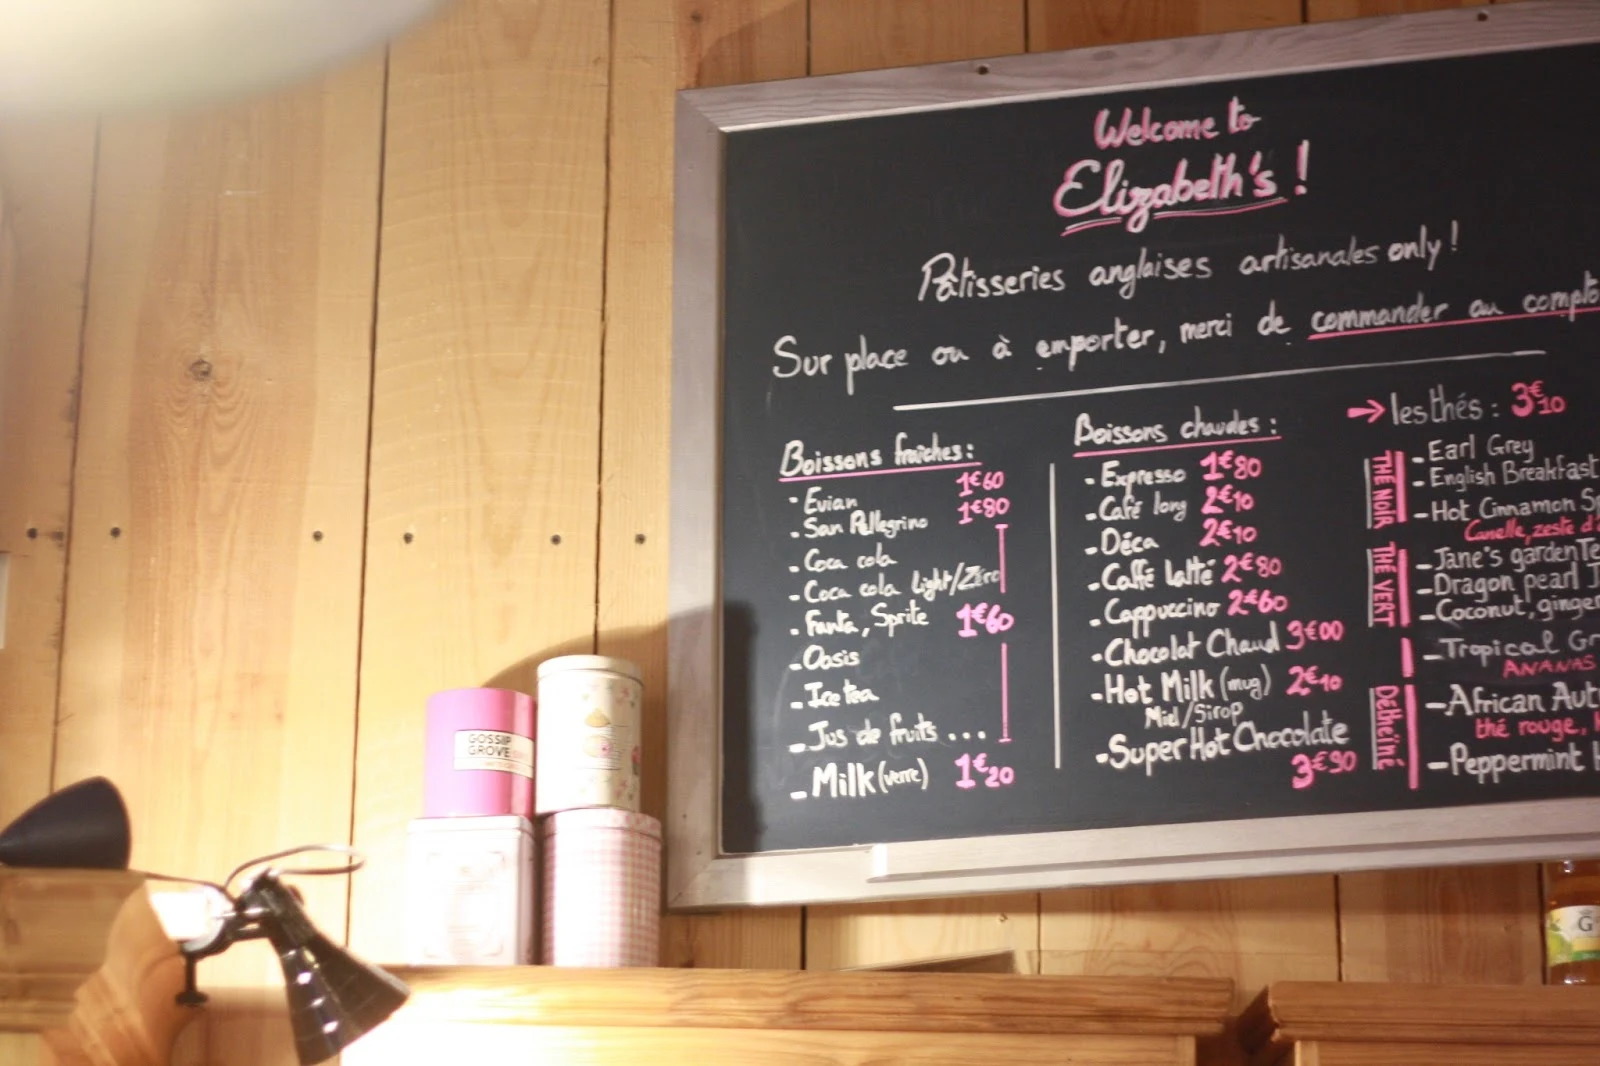 Welcome to
Elizabeth's !
Pâtisseries anglaises artisanales only !
Sur place ou à emporter, merci de commander au compto
Boissons fraîches :
- Evian 1€60
- San Pellegrino 1€80
- Coca cola
- Coca cola light/Zéro
- Fanta, Sprite 1€60
- Oasis
- Ice tea
- Jus de fruits ...
- Milk (verre) 1€20
Boissons chaudes :
- Expresso 1€80
- Café long 2€10
- Déca 2€10
- Caffé latté 2€80
- Cappuccino 2€60
- Chocolat Chaud 3€00
- Hot Milk (mug) 2€10
Miel/Sirop
- Super Hot Chocolate
3€90
→ les thés : 3€10
THE NOIR
- Earl Grey
- English Breakfast
- Hot Cinnamon Sp
Canelle, zeste d'
THE VERT
- Jane's garden Te
- Dragon pearl J
- Coconut, ginger
- Tropical Gr
ANANAS
Déthéiné
- African Aut
thé rouge,
- Peppermint
GOSSIP
GROVE
G